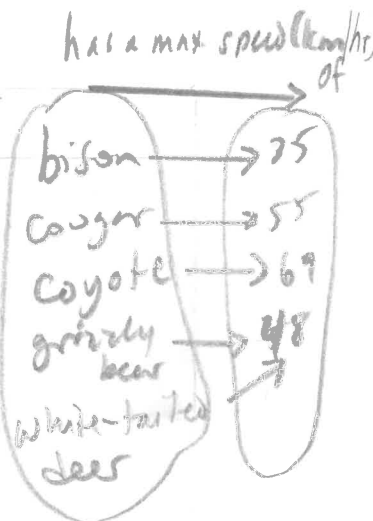 has a max speed (km/hr)
of
bison
cougar 55
coyote 69
grizzly 48
bear
white-tailed
deer